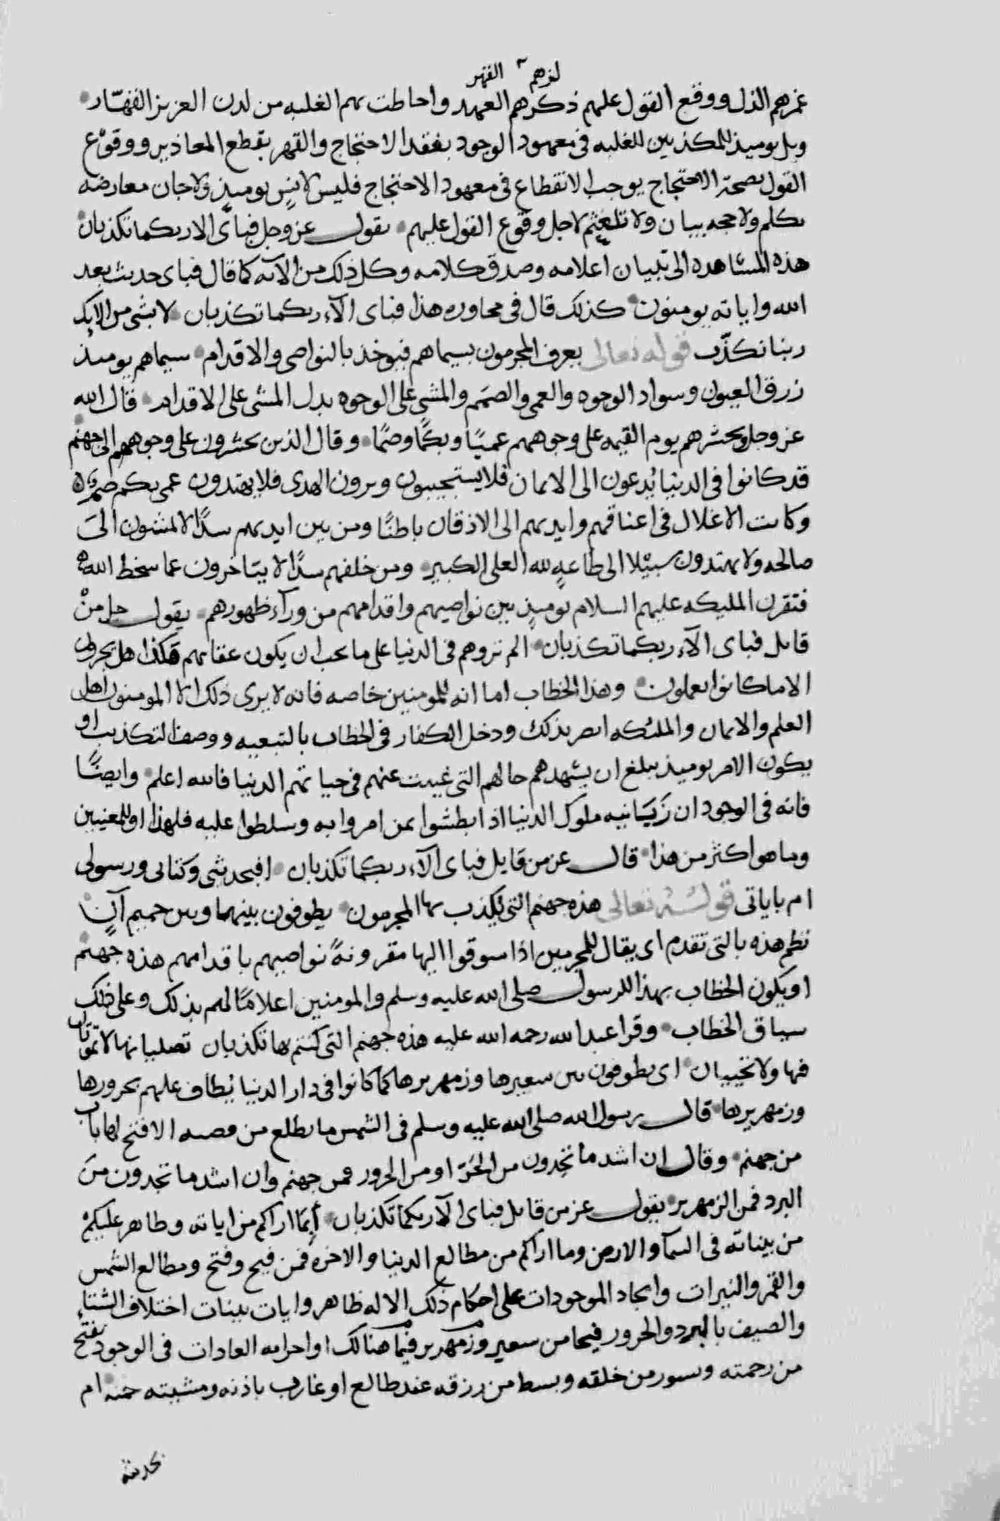 لزهم القهر
عزهم الذل ووقع القول عليهم ذكرهم العهد واحاطت بهم الغلبه من لدن العزيز القهار
ويل يوميذ للمكذبين للغلبه في معهود الوجود بفقد الاحتجاج والقهر بقطع المعاذير ووقوع
القول بصحة الاحتجاج يوجب الانقطاع في معهود الاحتجاج فليس لانس يوميذ ولا جان معارضه
بكلم ولا حجه ببيان ولا تلعثم لاجل وقوع القول عليهم يقول عز وجل فباى الا ربكما تكذبان
هذه المشاهده الى تبيان اعلامه وصدق كلامه وكل ذلك من الآئه كما قال فباى حديث بعد
الله واياته يومنون كذلك قال في محاوره هذا فباى الآء ربكما تكذبان لا بشى من الايك
ربنا نكذب قوله تعالى يعرف المجرمون بسيماهم فيوخذ بالنواصى والاقدام سيماهم يوميذ
زرق العيون وسواد الوجوه والعمى والصمم والمشى على الوجوه بدل المشى على الاقدام قال الله
عز وجل ونحشرهم يوم القيمه على وجوههم عميا وبكما وصما وقال الذين يحشرون على وجوههم الى جهنم
قد كانوا في الدنيا يدعون الى الايمان فلا يستجيبون ويرون الهدى فلا يهتدون عمى بكم صم
وكانت الاغلال في اعناقهم وايديهم الى الاذقان باطنا ومن بين ايديهم سدا لا يمشون الى
صالحه ولا يهتدون سبيلا الى طاعه لله العلى الكبير ومن خلفهم سدا لا يتاخرون عما سخط الله
فتقرن المليكه عليهم السلام يوميذ بين نواصيهم واقدامهم من ورآء ظهورهم يقول جل من
قايل فباى الآء ربكما تكذبان الم تروهم في الدنيا على ما يجب ان يكون عقابهم هكذا هل يجزون
الا ما كانوا يعملون وهذا الخطاب اما انه للمومنين خاصه فانه لا يرى ذلك الا المومنون اهل
العلم والايمان والمليكه ابصر بذلك ودخل الكفار في الخطاب بالتبعيه ووصف التكذيب او
يكون الامر يوميذ يبلغ ان يشهدهم حالهم التى غيبت عنهم في حياتهم الدنيا فالله اعلم وايضا
فانه في الوجود ان زبانيه ملوك الدنيا اذا بطشوا بمن امروا به وسلطوا عليه فلهذا او للمعنيين
وما هو اكثر من هذا قال عز من قايل فباى الآء ربكما تكذبان افبحديثى وكتابى ورسولى
ام باياتى قوله تعالى هذه جهنم التى يكذب بها المجرمون يطوفون بينها وبين حميم آن
نظم هذه بالتى تقدم اى يقال للمجرمين اذا سوقوا اليها مقرونة نواصيهم باقدامهم هذه جهنم
او يكون الخطاب بهذا للرسول صلى الله عليه وسلم والمومنين اعلاما لهم بذلك وعلى ذلك
سياق الخطاب وقرا عبد الله رحمه الله عليه هذه جهنم التى كنتم بها تكذبان تصليانها لا تموتان
فيها ولا تحييان اى يطوفون بين سعيرها وزمهريرها كما كانوا في دار الدنيا يطاف عليهم بحرورها
وزمهريرها قال رسول الله صلى الله عليه وسلم في الشمس ما تطلع من قصبه الا فتح لها باب
من جهنم وقال ان اشد ما تجدون من الحر او من الحرور فمن جهنم وان اشد ما تجدون من
البرد فمن الزمهرير يقول عز من قايل فباى الآء ربكما تكذبان ابما اراكم من اياته وظاهر عليكم
من بيناته في السمآء والارض وما اراكم من مطالع الدنيا والاخره فمن فيح وفتح ومطالع الشمس
والقمر والنيرات وايجاد الموجودات على احكام ذلك الاله ظاهر وايات بينات اختلاف الشتاء
والصيف بالبرد والحرور فيحا من سعير وزمهرير فيما هنالك او اجرايه العادات في الوجود بفتح
من رحمته وسور من خلقه وبسط من رزقه عند طالع او غارب باذنه ومشيته ام